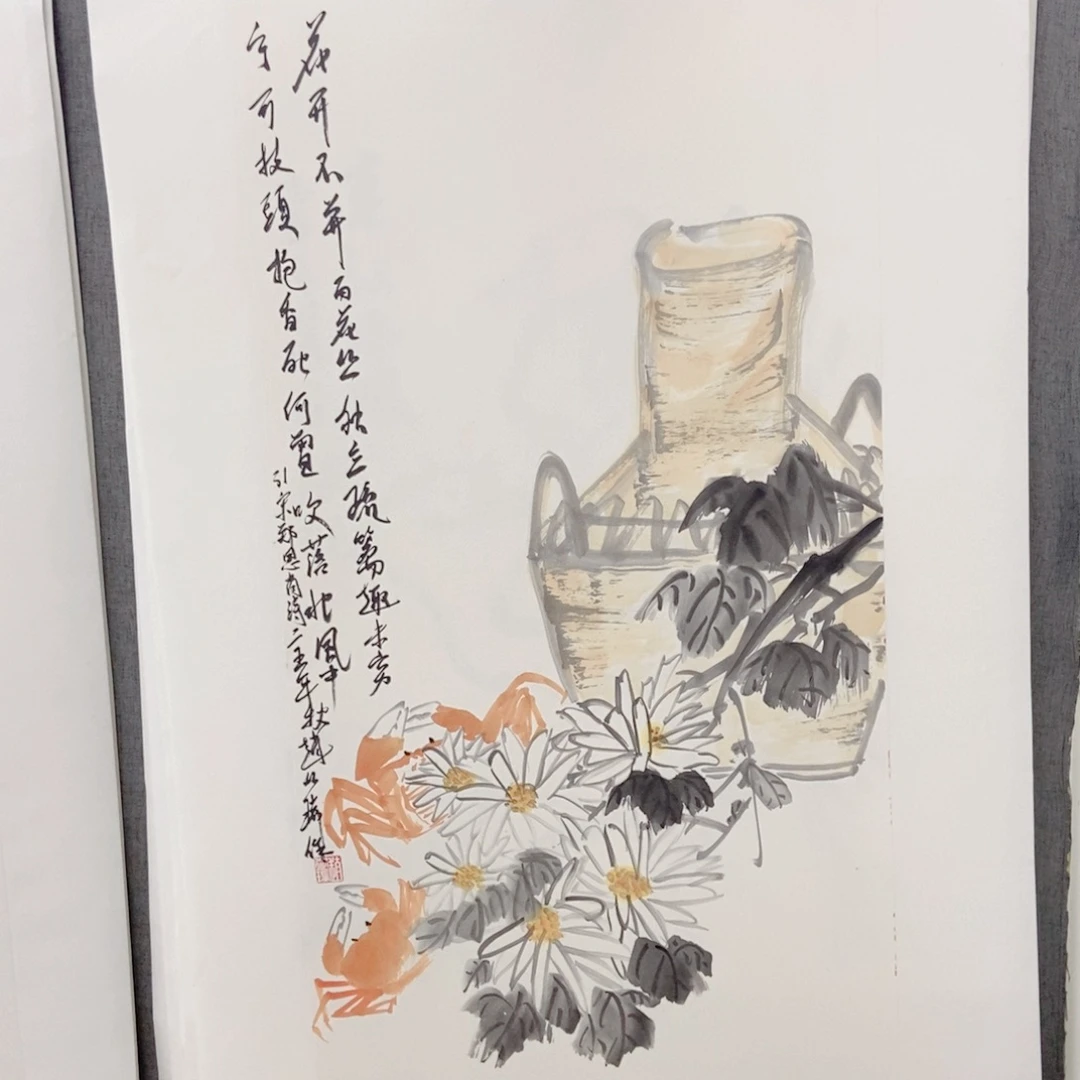 花开不并百花丛独立疏篱趣未穷
宁可枝頭抱香死何曾吹落北風中
引宋郑思肖詩二